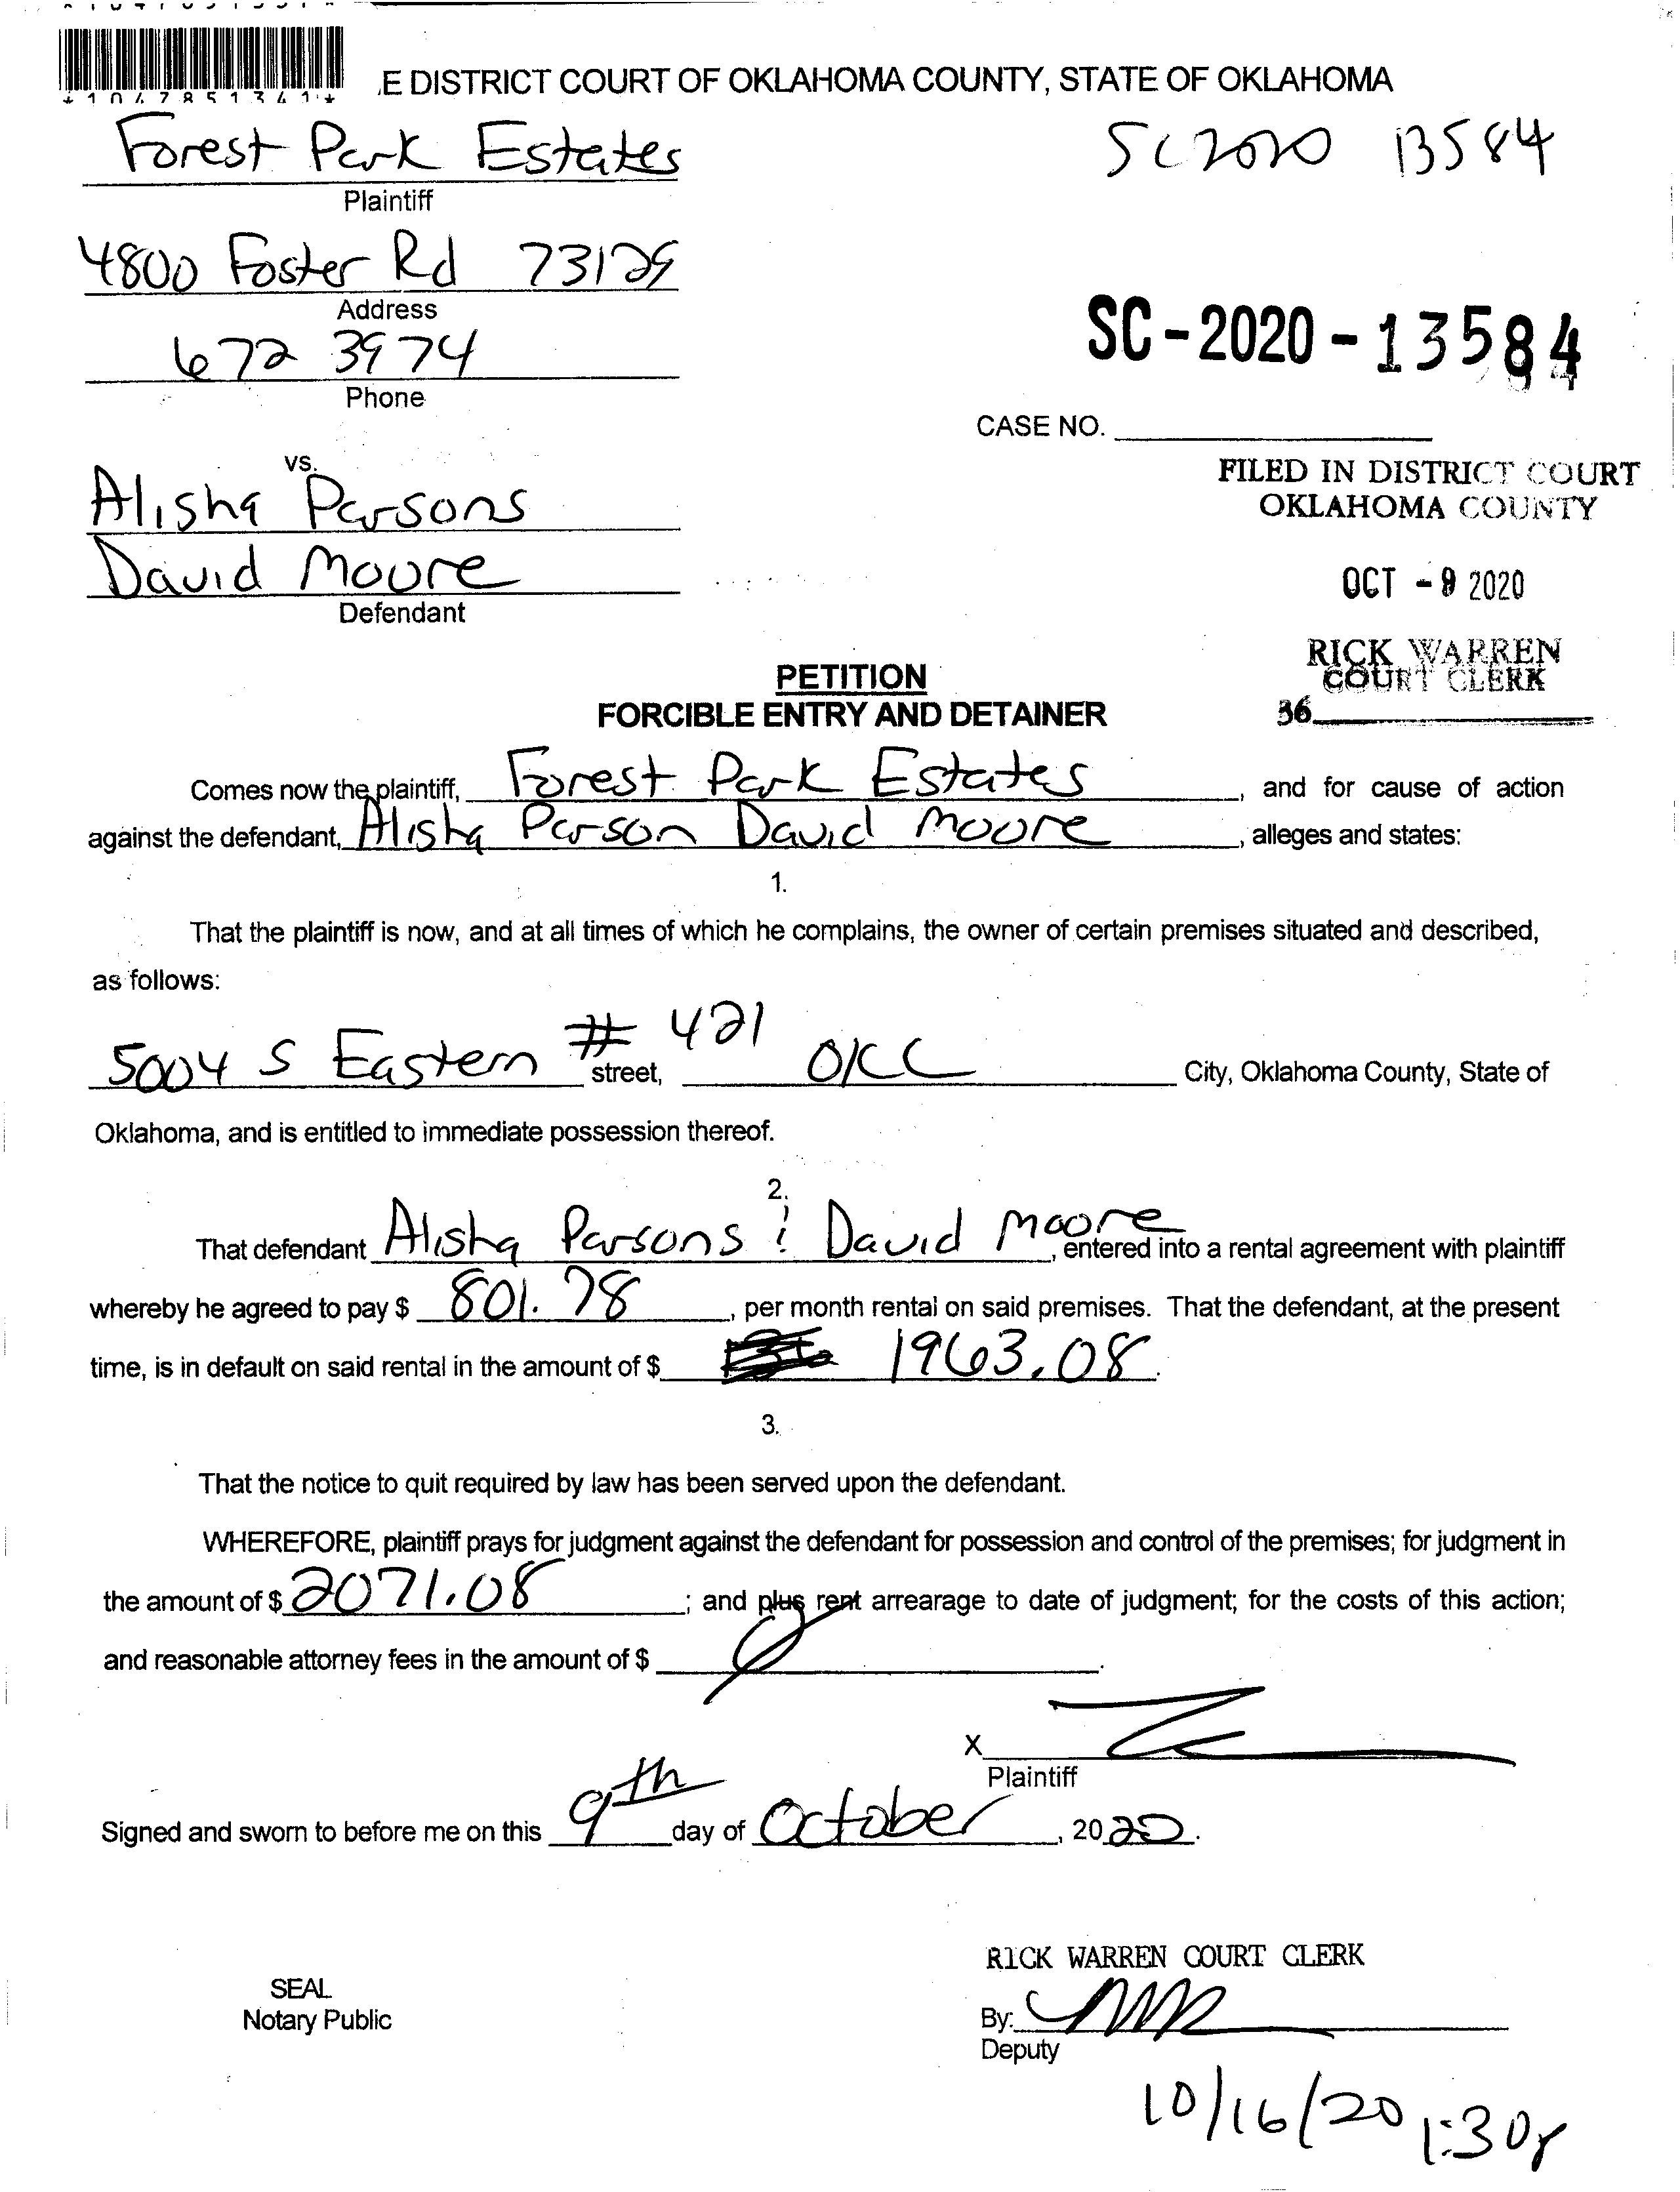 *1047851341*
E DISTRICT COURT OF OKLAHOMA COUNTY, STATE OF OKLAHOMA
Forest Park Estates
SC2020 13584
Plaintiff
4800 Foster Rd 73129
Address
672 3974
Phone
SC-2020-13584
CASE NO.
vs.
Alisha Parsons
David Moore
Defendant
FILED IN DISTRICT COURT
OKLAHOMA COUNTY
OCT -9 2020
RICK WARREN
COURT CLERK
36
PETITION
FORCIBLE ENTRY AND DETAINER
Comes now the plaintiff, Forest Park Estates, and for cause of action
against the defendant, Alisha Parson David Moore, alleges and states:
1.
That the plaintiff is now, and at all times of which he complains, the owner of certain premises situated and described,
as follows:
5004 S Eastern # 421 street, OKC City, Oklahoma County, State of
Oklahoma, and is entitled to immediate possession thereof.
2.
That defendant Alisha Parsons & David Moore, entered into a rental agreement with plaintiff
whereby he agreed to pay $ 801.78, per month rental on said premises. That the defendant, at the present
time, is in default on said rental in the amount of $ 1963.08.
3.
That the notice to quit required by law has been served upon the defendant.
WHEREFORE, plaintiff prays for judgment against the defendant for possession and control of the premises; for judgment in
the amount of $ 2071.08; and plus rent arrearage to date of judgment; for the costs of this action;
and reasonable attorney fees in the amount of $
X
Plaintiff
Signed and sworn to before me on this 9th day of October, 2020.
RICK WARREN COURT CLERK
SEAL
Notary Public
By:
Deputy
10/16/20 1:30p